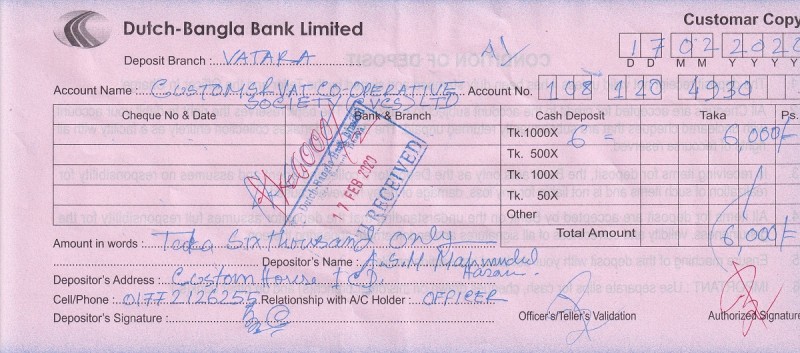 Dutch-Bangla Bank Limited
Customar Copy
Deposit Branch : VATARA
17 02 2020
D D M M Y Y Y Y
Account Name : CUSTOMS & VAT CO-OPERATIVE
SOCIETY (VCS) LTD
Account No. 108 120 4930
Cheque No & Date Bank & Branch Cash Deposit Taka Ps.
Tk.1000X 6 = 6,000/-
Tk. 500X
Tk. 100X
Tk. 50X
Other
Total Amount 6,000/-
6000/
Dutch-Bangla Bank Limited
17 FEB 2020
RECEIVED
Amount in words : Taka Six thousand only
Depositor's Name : A.S.M
Hasan
Depositor's Address : Custom House
Cell/Phone : 01772126255 Relationship with A/C Holder : OFFICER
Depositor's Signature :
Officer's/Teller's Validation
Authorized Signature